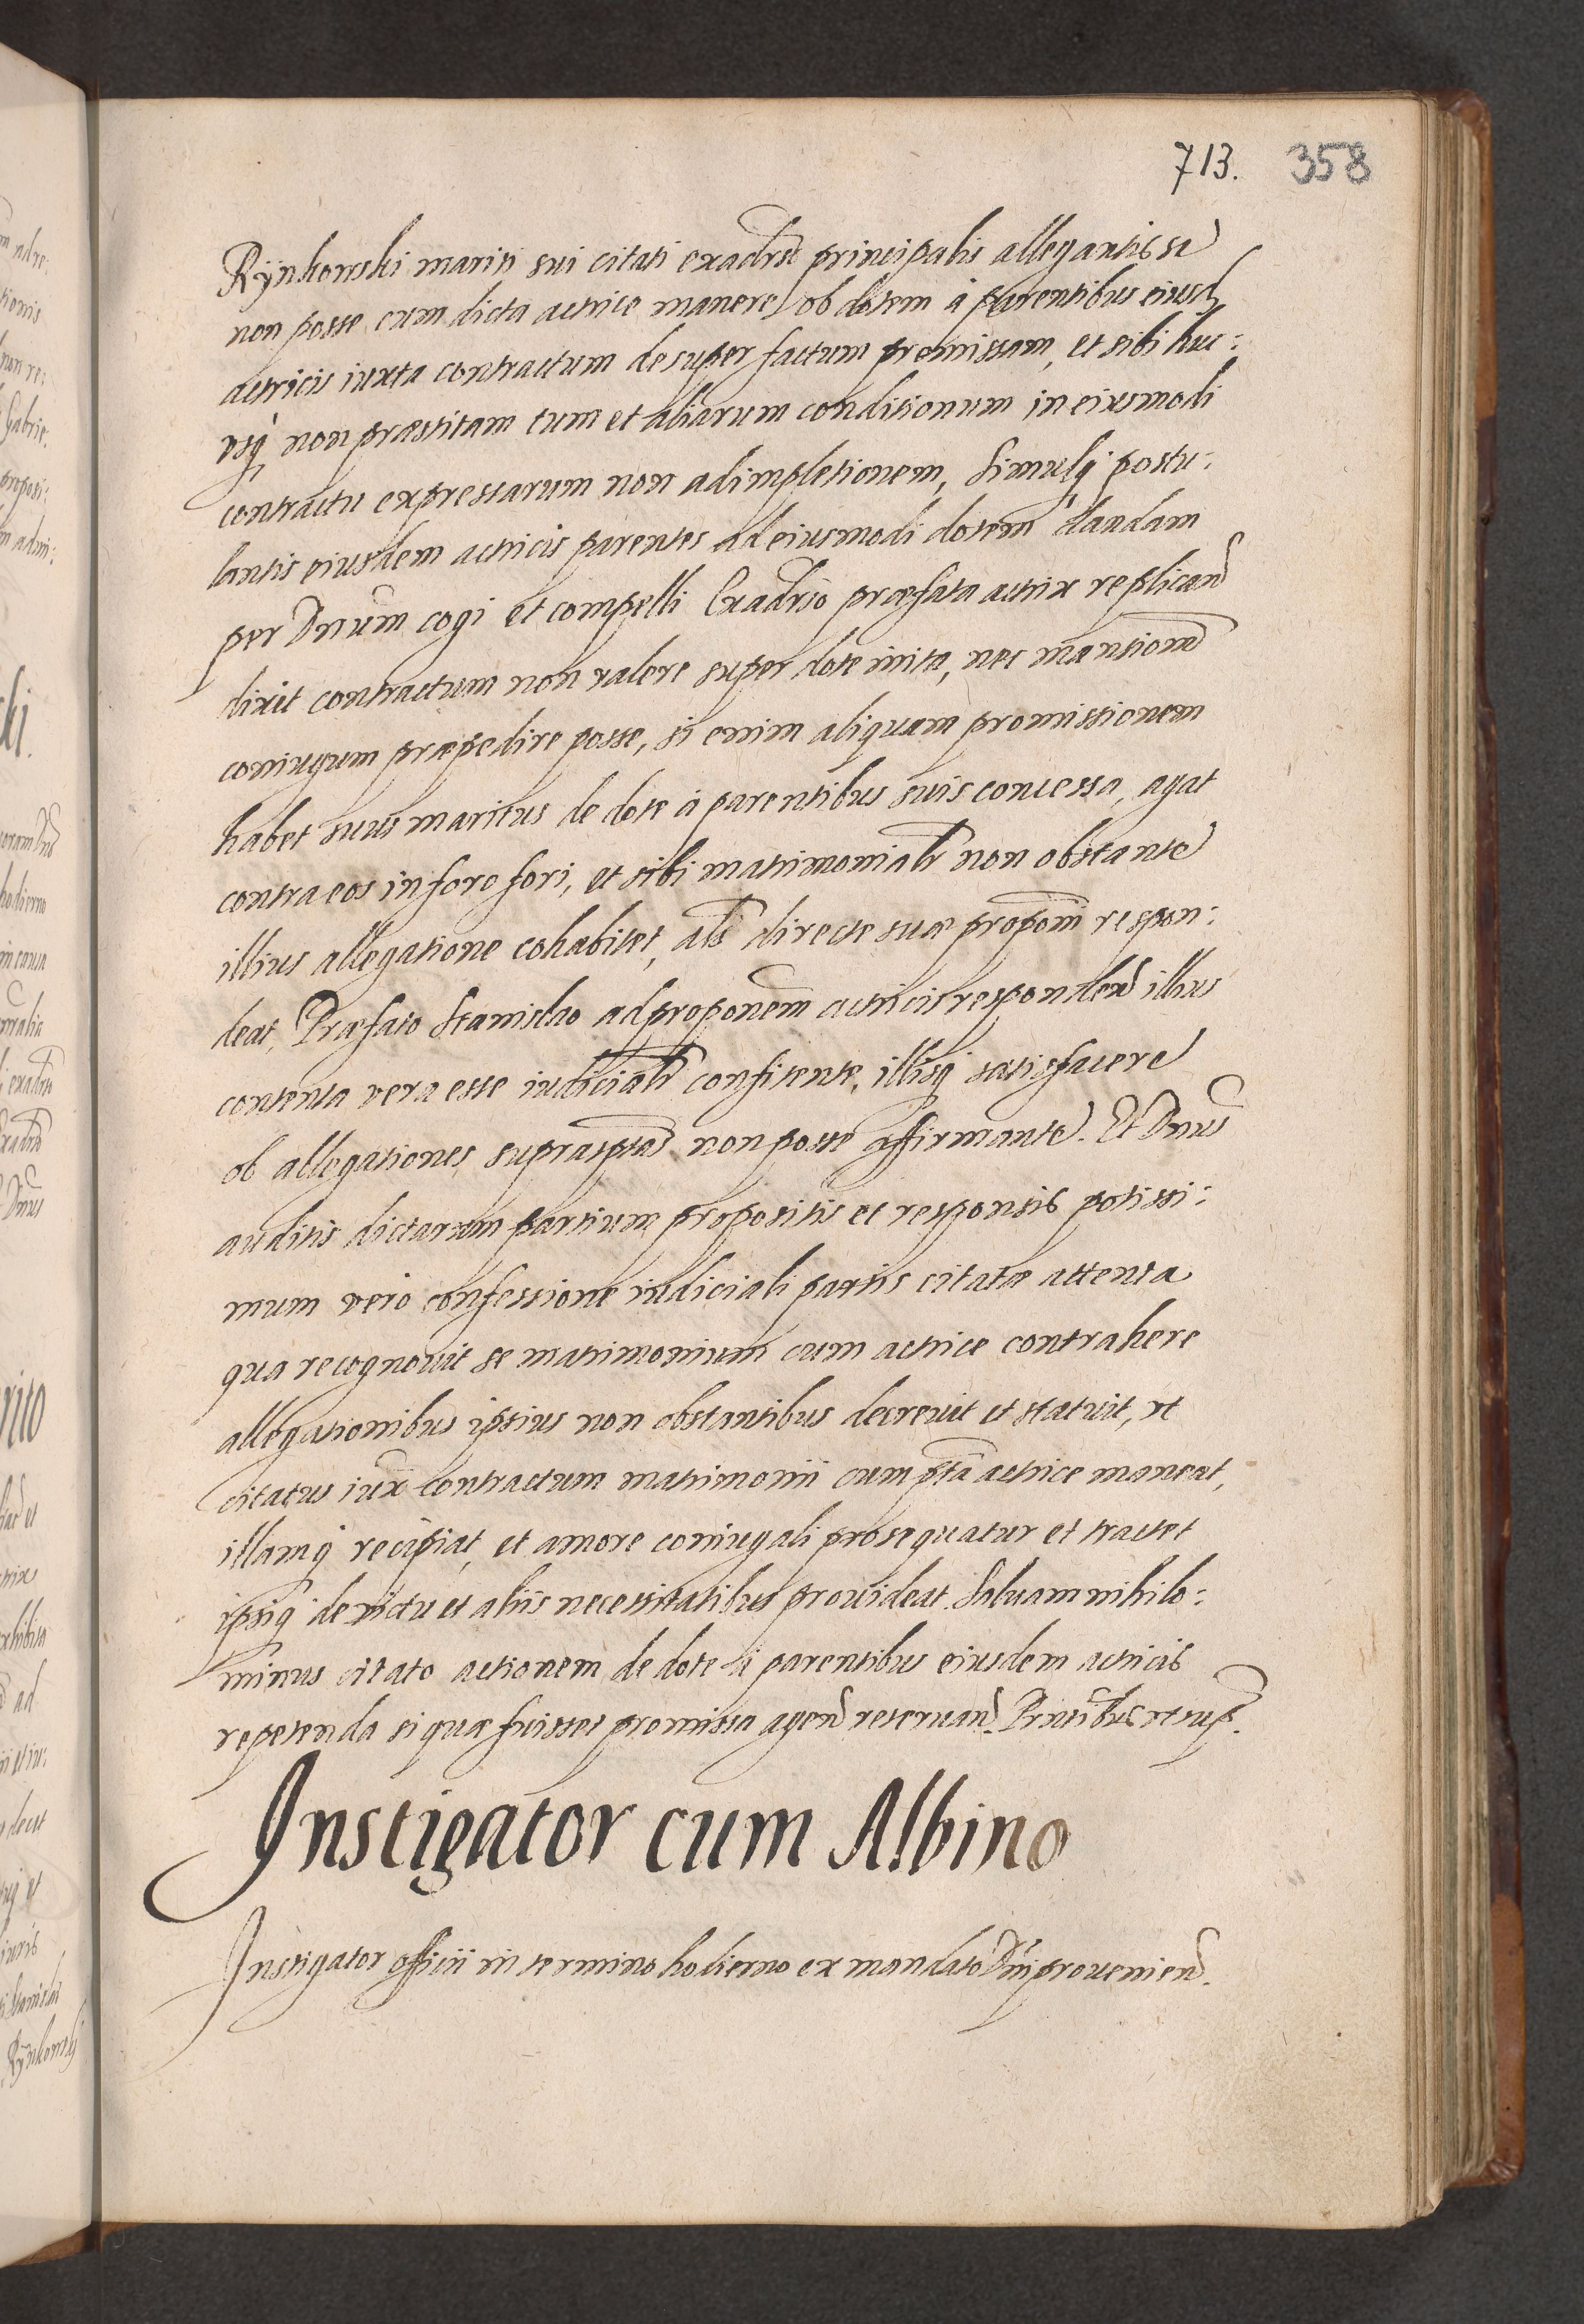 713. 358
Rÿnkowski mariti sui citati exadrso principalis allegantis se
non posse cum dicta actrice manere ob dotem à parentibus eiusd
actricis iuxta contractum desuper factum promissam, et sibi huc:
vsq; non præstitam tum et aliarum conditionum in eiusmodi
contractu expressarum non adimpletionem, simulq; postu:
lantis eiusdem actricis parentes ad eiusmodi dotem dandam
per Dnum cogi et compelli Exadrso præfata actrix replicand
dixit contractum non valere super dote inita, nec mansionem
coniugum præpedire posse, si enim aliquam promissionem
habet suus maritus de dote à parentibus suis concessa, agat
contra eos in foro fori, et sibi matrimonialr non obstante
illius allegatione cohabitet, als directe suæ proponi respon:
deat, Præfato Stanislao ad proponem actricis responden illius
contenta vera esse iudicialr confitente, illisq; satisfacere
ob allegationes suprasptas non posse affirmante. Et Dnus
auditis dictarum partium propositis et responsis potissi:
mum vero confessione iudiciali partis citatæ attenta
qua recognouit se matrimonium cum actrice contrahere
allegationibus ipsius non obstantibus decreuit et statuit, vt
citatus iux contractum matrimonii cum pta actrice maneat,
illamq; recipiat, et amore coniugali prosequatur et tractet
ipsiq; de victu et aliis necessitatibus prouideat. Saluam nihilo:
minus citato actionem de dote à parentibus eiusdem actricis
repetenda si quæ fuisset promissa agend reseruand. Prntibus vt sup.
Instigator cum Albino
Instigator officii in termino hodierno ex mandato Dni proueniend.